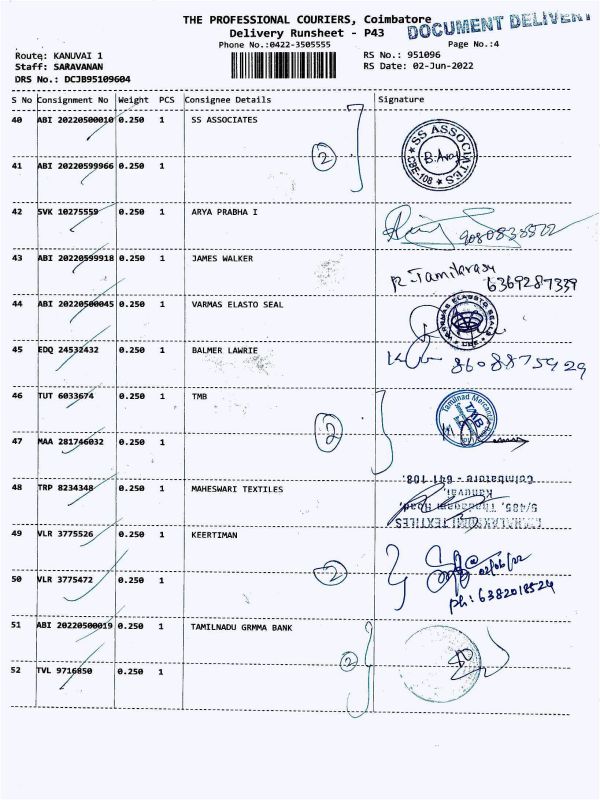 THE PROFESSIONAL COURIERS, Coimbatore
DOCUMENT DELIVERY
Delivery Runsheet - P43
Phone No.:0422-3505555
Page No.:4
Route: KANUVAI 1
RS No.: 951096
Staff: SARAVANAN
RS Date: 02-Jun-2022
DRS No.: DCJB95109604
S No Consignment No Weight PCS Consignee Details Signature
40 ABI 20220500010 0.250 1 SS ASSOCIATES
2
SS ASSOCIATES
CBE-108
41 ABI 20220599966 0.250 1
42 SVK 10275559 0.250 1 ARYA PRABHA I
9080833522
43 ABI 20220599918 0.250 1 JAMES WALKER
R. Tamilarasu
6369287339
44 ABI 20220500045 0.250 1 VARMAS ELASTO SEAL
VARMAS ELASTO SEALS
CBE
45 EDQ 24532432 0.250 1 BALMER LAWRIE
8608875929
46 TUT 6033674 0.250 1 TMB
2
Tamilnad Mercantile
TMB
47 MAA 281746032 0.250 1
48 TRP 8234348 0.250 1 MAHESWARI TEXTILES
Coimbatore - 641 108.
Kanuvai,
5/485, Thadagam Road,
TEXTILES
49 VLR 3775526 0.250 1 KEERTIMAN
2
02/06/22
Ph: 6382018524
50 VLR 3775472 0.250 1
51 ABI 20220500019 0.250 1 TAMILNADU GRMMA BANK
2
52 TVL 9716850 0.250 1